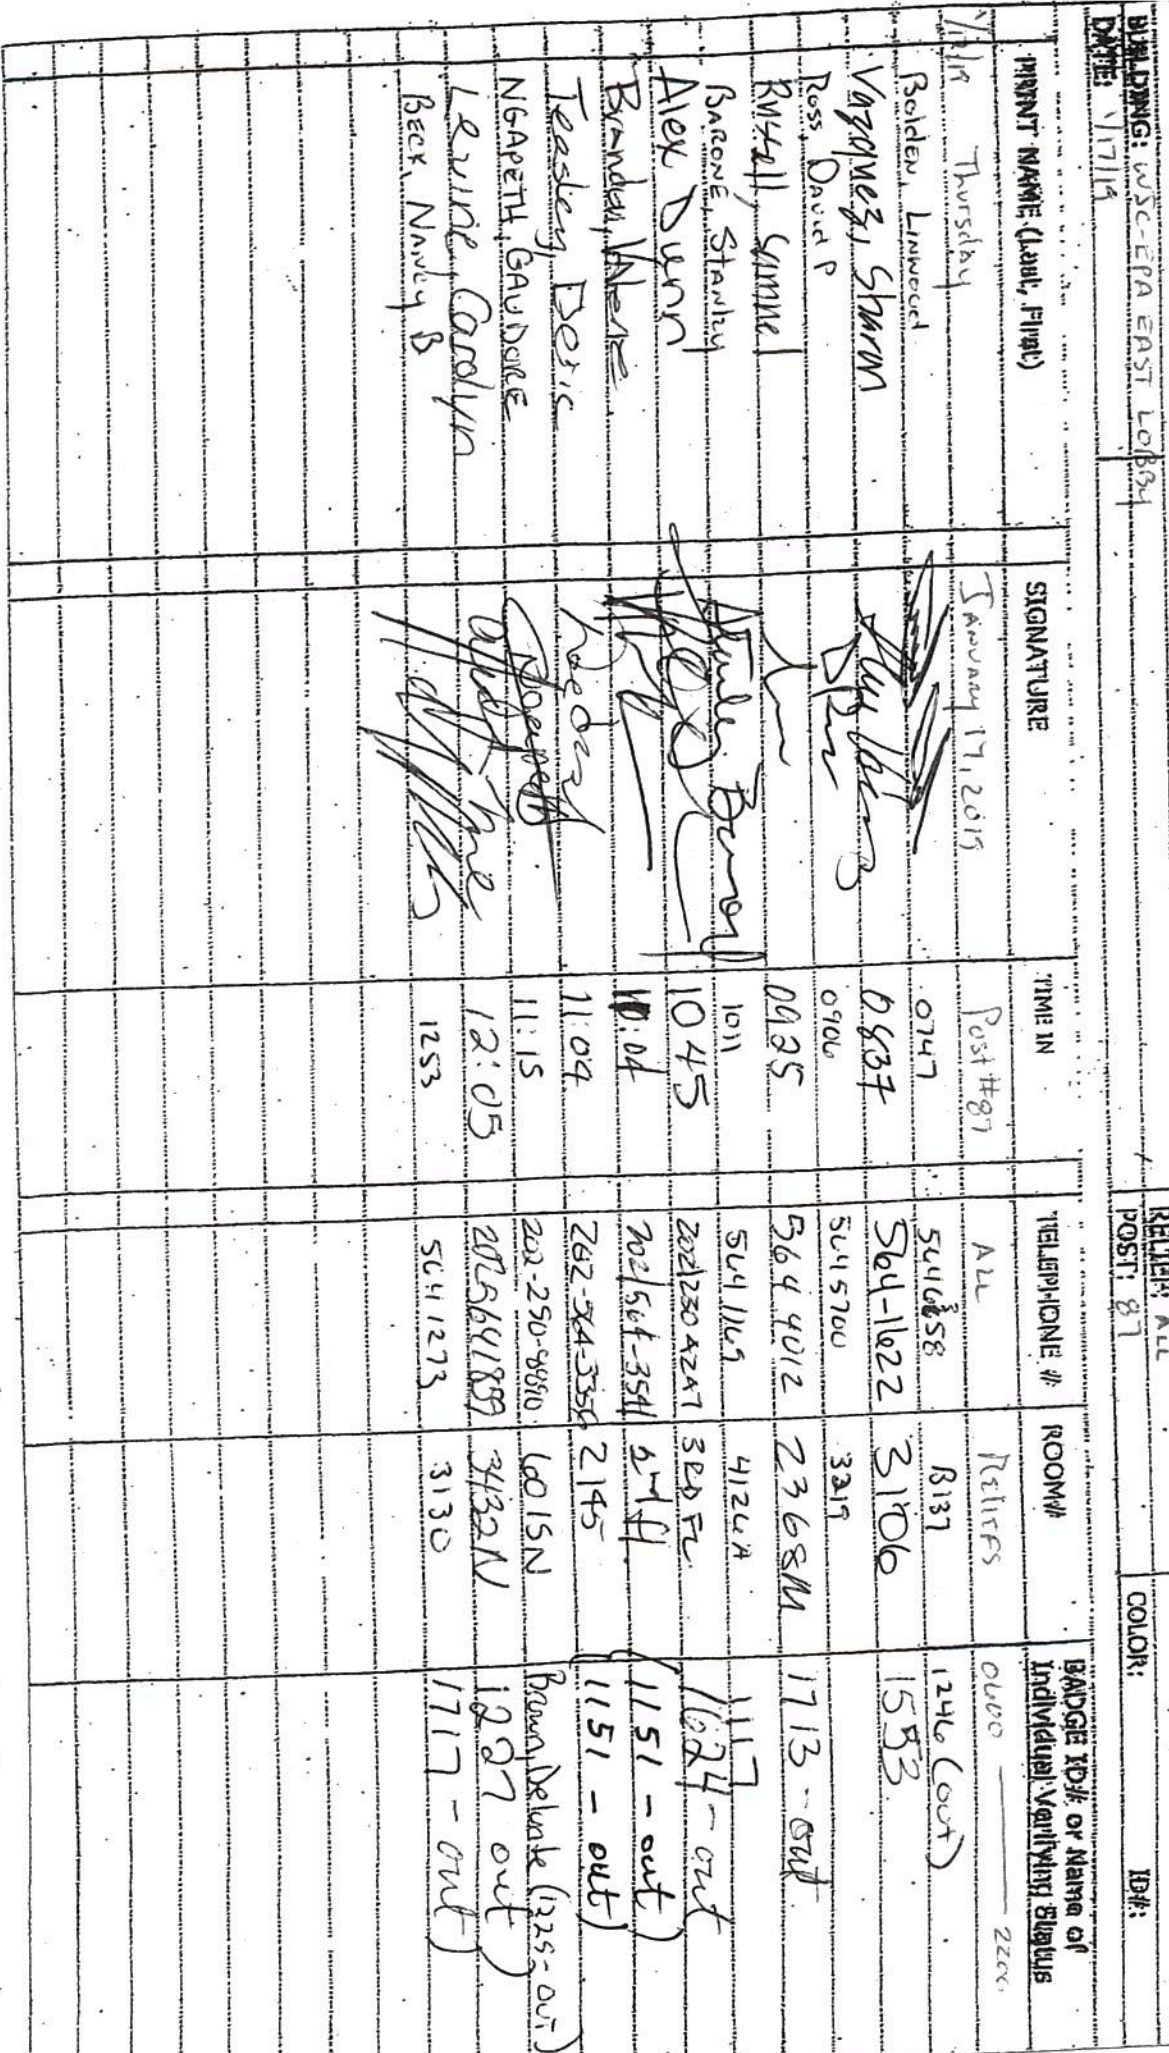 BUILDING: WJC-EPA EAST LOBBY RELIEF: ALL COLOR: ID#:
DATE: 1/17/19 POST: 87
PRINT NAME (Last, First) SIGNATURE TIME IN TELEPHONE # ROOM# BADGE ID# or Name of Individual Verifying Status
1/17/19 Thursday January 17, 2019 Post #87 ALL Reliefs 0600 2200
Bolden, Linwood 0747 B137 1246 (out)
Vazquez, Sharon 0837 564-1622 3106 1553
Ross, David P 0906 564 5700 3219
Russell, Sumnel 0925 564 4012 2368M 1713-out
BARONE, Stanley Stanley Barone 1011 564 1169 4126A 1117
Alex Dunn 1045 3RD FL. 1624-out
11:04 202/564-3541 (1151-out)
Teasley, Desic 11:04 2145 (1151-out)
NGAPETH, GAUDORE Ngapeth 11:15 6015N (1225-out)
Levine, Carolyn 12:05 2025641859 3432N 1227 out)
BECK, Nancy B 1253 564 1273 3130 1717-out)